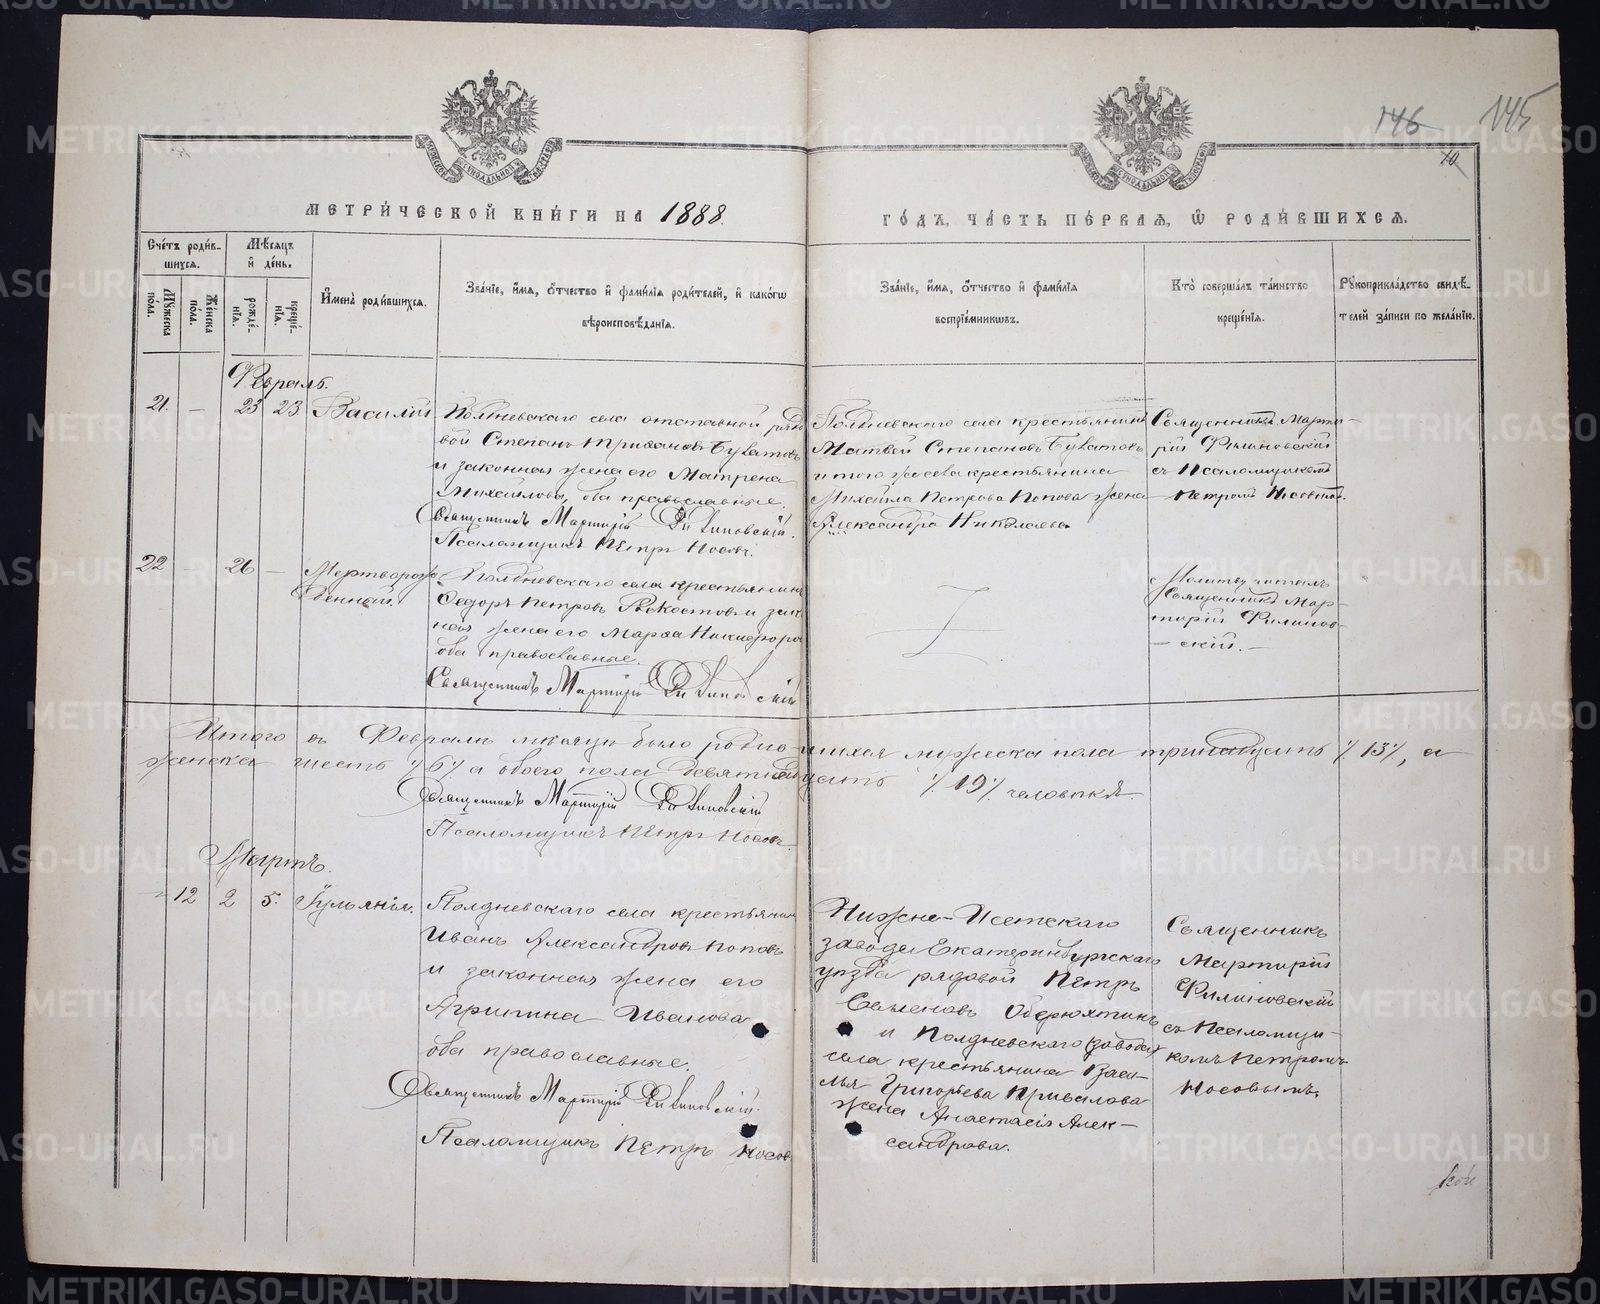 146
145
10
МЕТРИ́ЧЕСКОЙ КНИ́ГИ НА 1888.
ГО́ДЪ, ЧА́СТЬ ПЕ́РВАЯ, Ѡ҆ РОДИ́ВШИХСЯ.
Сче́тъ роди́в-
шихся.
Мѣсяцъ
и҆ де́нь.
Му́жеска
по́ла.
Же́нска
по́ла.
рожде́-
нїя.
креще́-
нїя.
И҆мена̀ роди́вшихся.
Зва́нїе, и҆́мя, ѻ҆́тчество и҆ фами́лїя роди́телей, и҆ како́гѡ
вѣроисповѣ́данїя.
Зва́нїе, и҆́мя, ѻ҆́тчество и҆ фами́лїя
воспрїе́мникѡвъ.
Кто̀ соверша́лъ та́инство
креще́нїя.
Рꙋкоприкла́дство свидѣ́-
телей за́писи по жела́нїю.
Февраль.
21. — 23 23 Василій
Полдневскаго села отставной рядо
вой Степанъ
и законная жена его Матрена
Михайлова, оба православные.
Священникъ Мартирій Филиновскій.
Псаломщикъ Петръ Носовъ.
Полдневскаго села крестьянинъ
Матвей Степановъ
и того же села крестьянина
Михаила Петрова Попова жена
Александра Николаева
Священникъ Марти-
рій Филиновскій
съ Псаломщикомъ
Петромъ Носовымъ.
22 — 26 — Мертворож
денный.
Полдневскаго села крестьянинъ
Федоръ Петровъ и зако
ная жена его Марѳа Никифорова
оба православные.
Священникъ Мартирій Филиновскій
Молитву читалъ
Священникъ Мар-
тирій Филинов-
— скій. —
Итого въ Февралѣ мѣсяцѣ было родившихся мужеска пола тринадцать /13/, а
женска шесть /6/ а обоего пола девятнадцать /19/ человѣкъ.
Священникъ Мартирій Филиновскій
Псаломщикъ Петръ Носовъ.
Мартъ.
— 12 2 5. Іульянія.
Полдневскаго села крестьянинъ
Иванъ Александровъ Поповъ
и законная жена его
Агрипина Иванова
оба православные.
Священникъ Мартирій Филиновскій.
Псаломщикъ Петръ Носовъ
Нижне-Исетскаго
завода Екатеринбургскаго
уѣзда рядовой Петръ
Семеновъ Оберюхтинъ
и Полдневскаго (завода)
села крестьянина Васи-
лья Григорьева Привалова
жена Анастасія Алек-
сандрова.
Священникъ
Мартирій
Филиновскій
съ Псаломщи-
комъ Петромъ
Носовымъ.